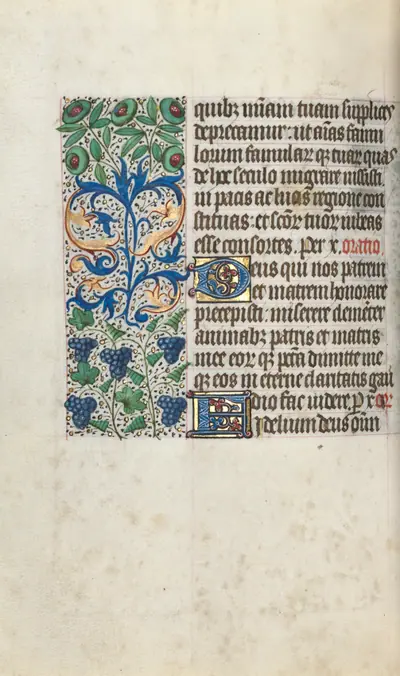 quib; mĩam tuam supplices
deprecamur: ut aĩas famu
lorum famular̃ q; tuar̃ quas
de hoc seculo migrare iussisti
in pacis ac lucis regione con
stituas: et scõr̃ tuor̃ iubeas
esse consortes. Per x. oratio
Deus qui nos patrem
et matrem honorare
precepisti: miserere clemẽter
animab; patris et matris
mee eor̃ q; pctã dimitte me
q; eos in eterne claritatis gau
dio fac videre. P x or
Fidelium deus om̃